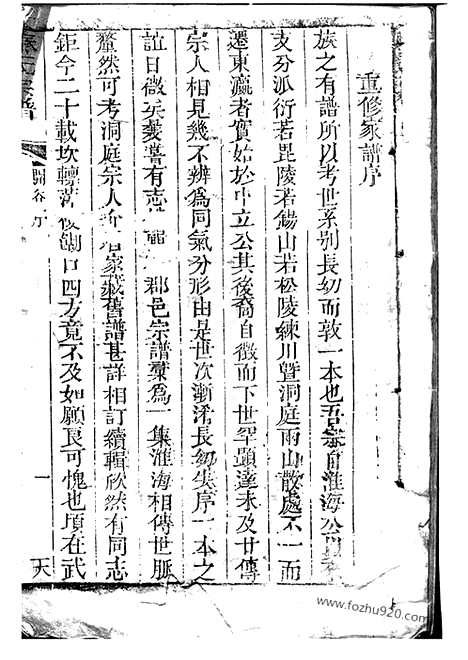 重修家譜序
族之有譜所以考世系別長幼而敦一本也吾宗自淮海公
支分派衍若毘陵若錫山若松陵練川曁洞庭兩山散處不一而
遷東瀛者實始於中立公其後裔自徵而下世罕顯達未及廿傳
宗人相見幾不辨為同氣分形由是世次漸淆長幼失序一本之
誼日微矣夔嘗有志 郡邑宗譜彚為一集淮海相傳世脈
釐然可考洞庭宗人 家藏舊譜甚詳相訂續輯欣然有同志
鉅今二十載坎轗 口四方竟不及如願良可愧也頃在武
一
天
www.fozhu920.com